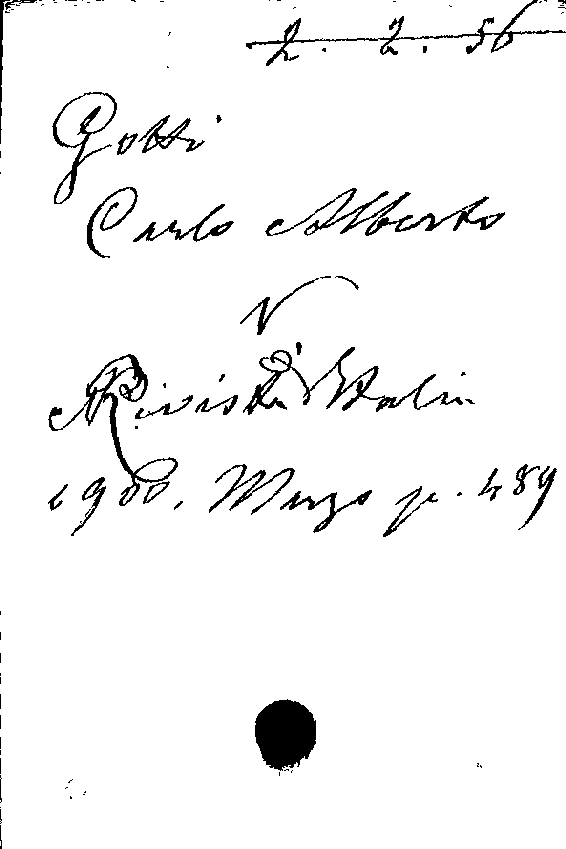 2. 2. 56
Gotti
Carlo Alberto
V
Rivista d'Italia
1900. Marzo p. 489